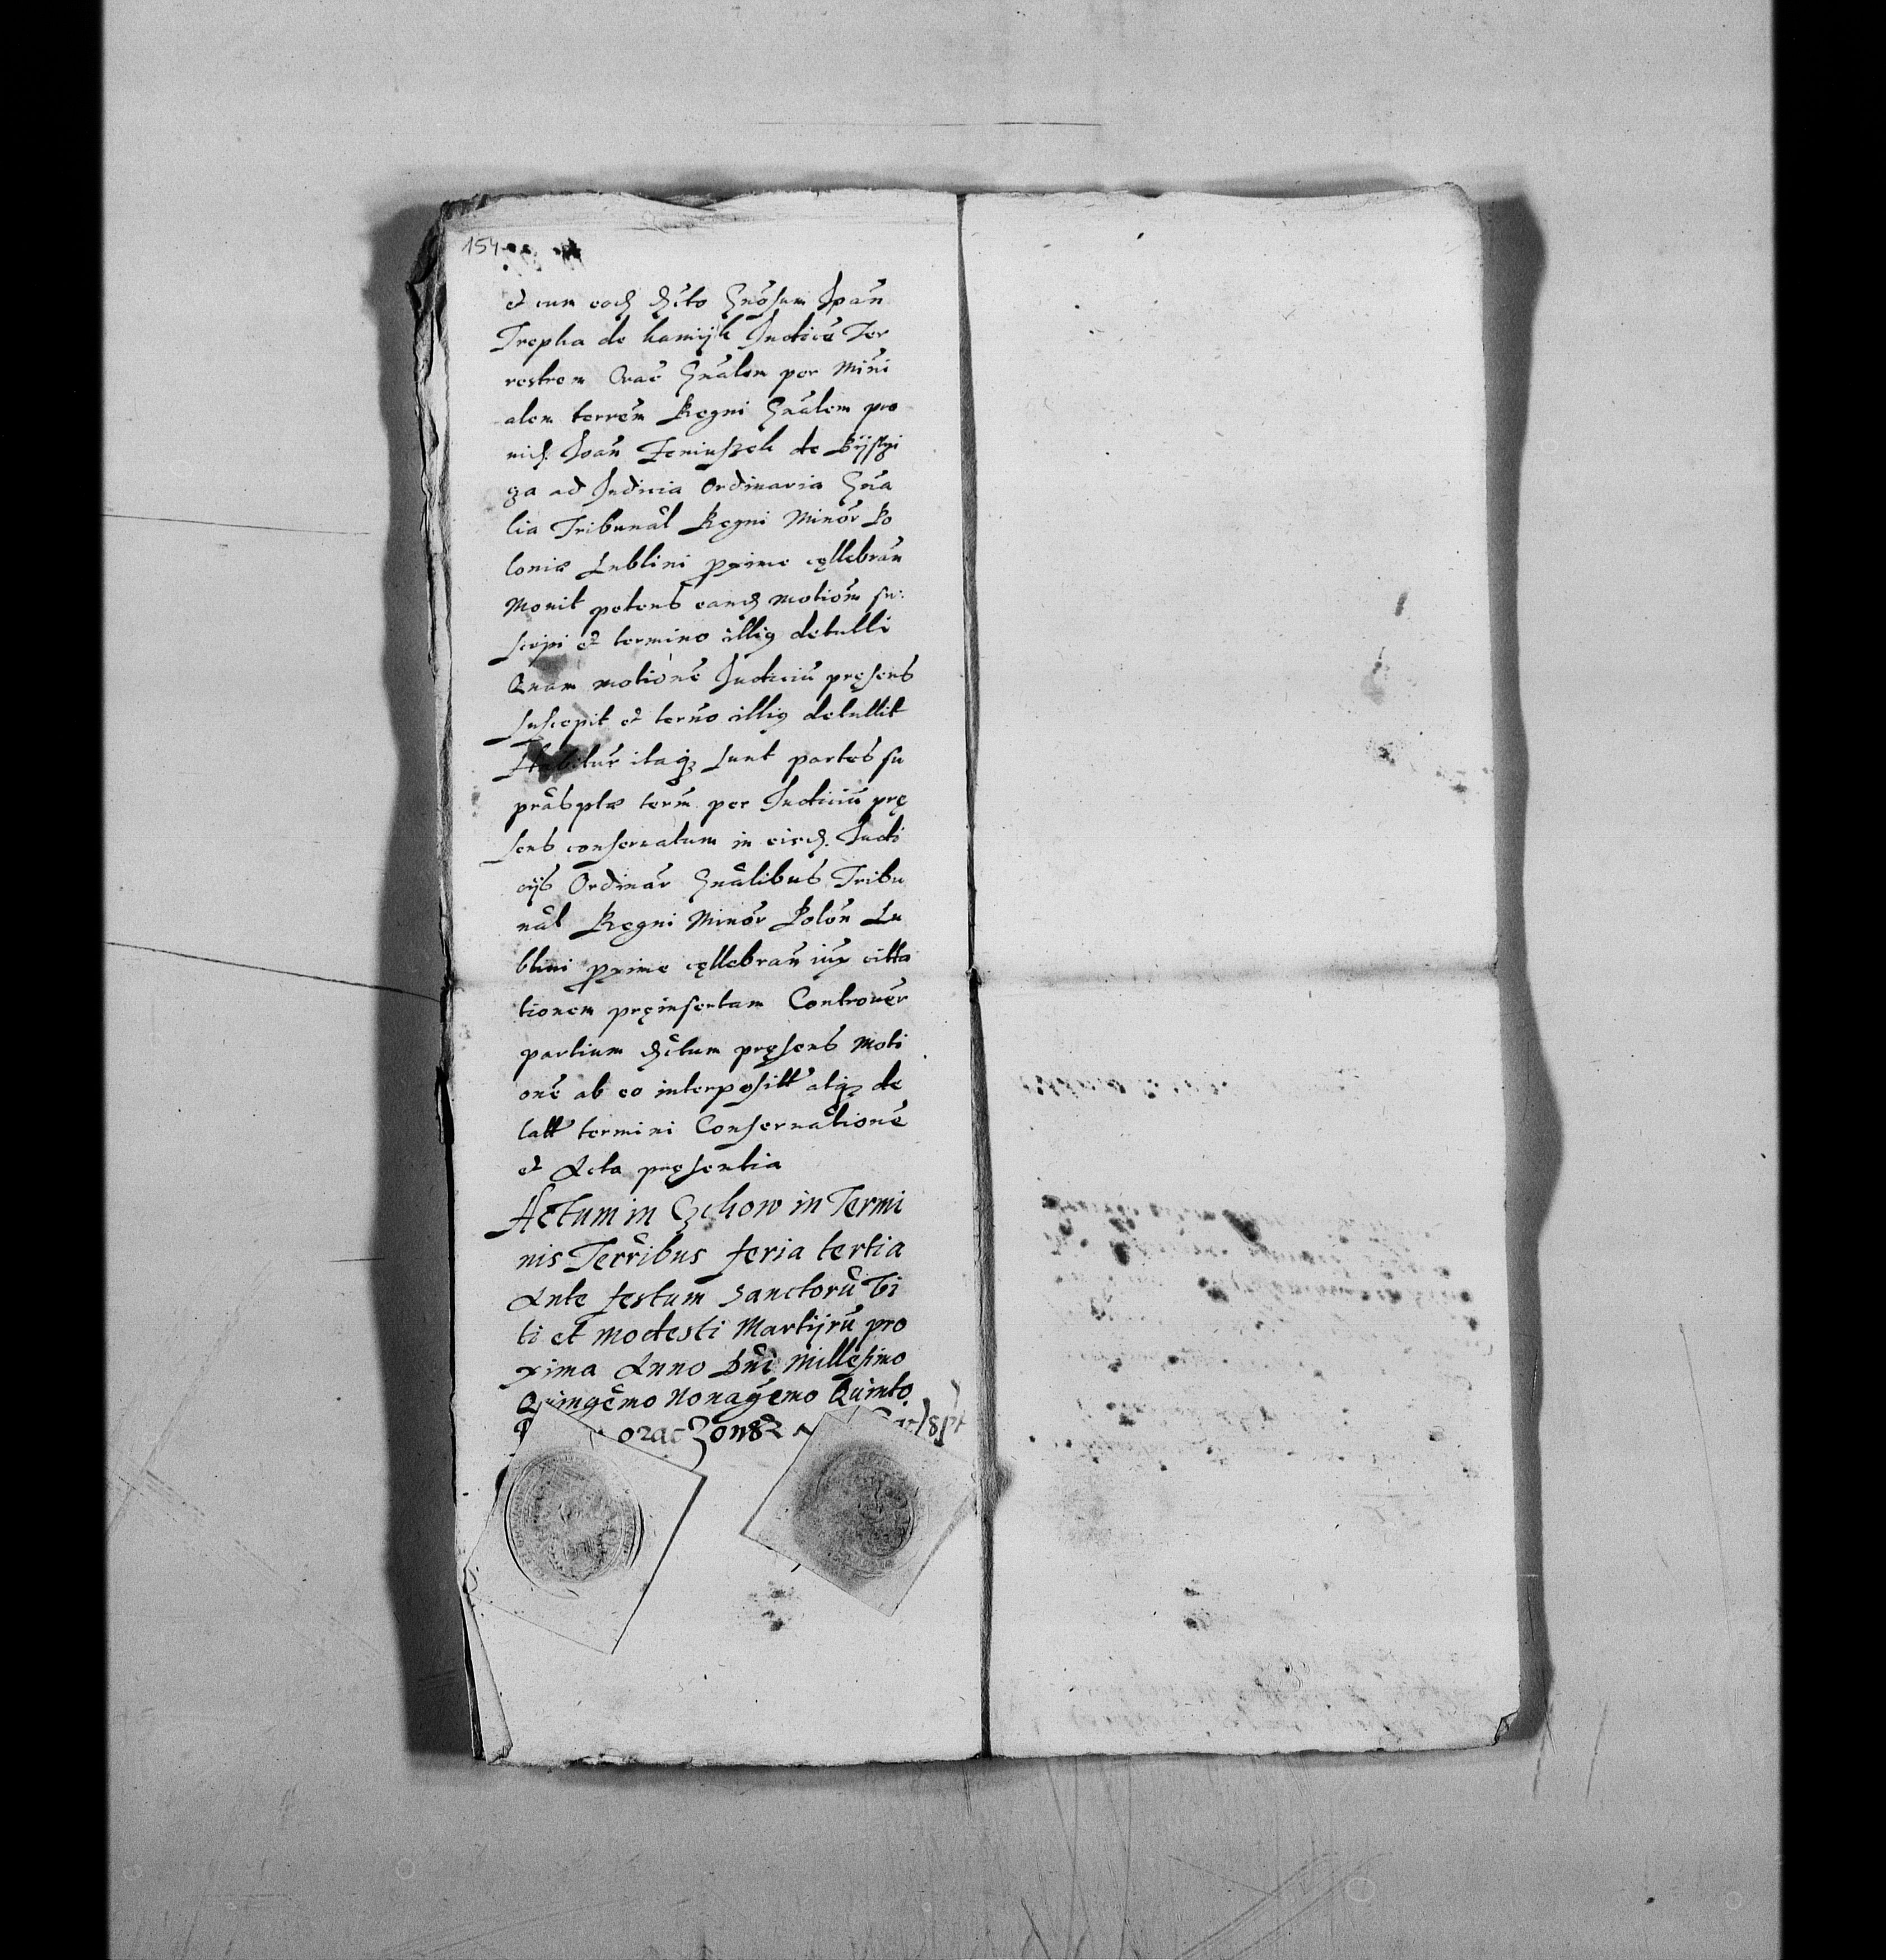 154
et cum eod. Dcto Gnosum Joan
Trepka de kamijk Judicē Ter
restrem Crac̄ Gnalem per Mini
alem terrēm Regni Gnalem pro
nid. Joan̄ Zeniuszek de
ga ad Judicia Ordinaria Gna
lia Tribunal̄ Regni Minor̄ Po
loniæ Lublini pxime cęllebran̄
Monit petens eand. motion̄ su:
scipi et termino illiq detulli
Quam motionē Judiciū pręsens
suscepit et termo illiq detullit
itaq sunt partes su
prasptæ term̄ per Judiciū prę
sens conservatum in eisd. Judi
cijs Ordinar̄ Gnalibus Tribu
nal̄ Regni Minor̄ Polon̄ Lu
blini pxime cęllebran̄ iux citta
tionem pręinsertam Controver̄
partium dctum pręsens Moti
onē ab eo interposit̄ atq de
latt̄ termini Conservationē
et Acta pręsentia
Actum in Czchow in Termi
nis Terr̄ibus feria tertia
Ante festum Sanctorū Vi
ti et Modesti Martijrū pro
xima Anno Dn̄i Millesimo
Quingēmo Nonagēmo Quinto